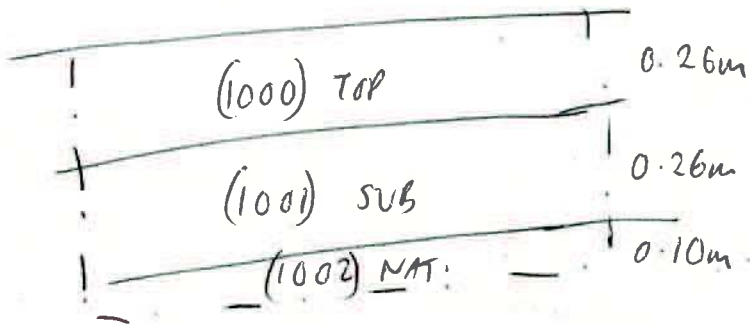 (1000) TOP 0.26m
(1001) SUB 0.26m
(1002) NAT. 0.10m